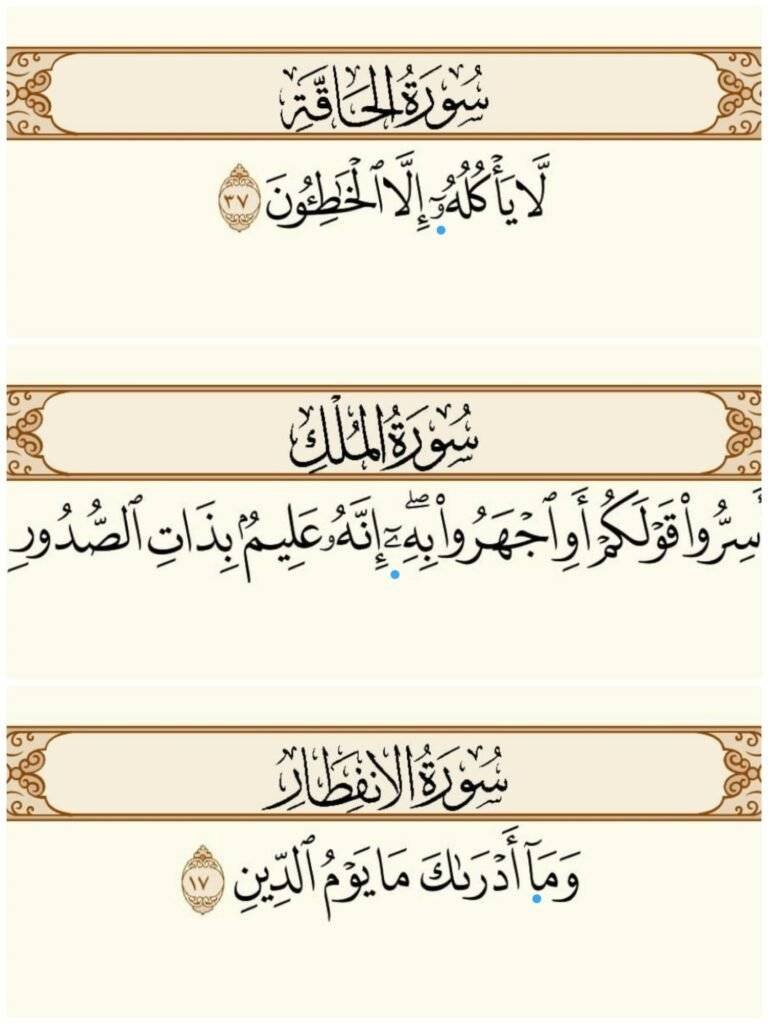 سُورَةُ الحَاقَّةِ
لَّا يَأْكُلُهُۥٓ إِلَّا ٱلْخَٰطِـُٔونَ ٣٧
سُورَةُ المُلْكِ
أَسِرُّوا۟ قَوْلَكُمْ أَوِ ٱجْهَرُوا۟ بِهِۦٓ ۖ إِنَّهُۥ عَلِيمٌۢ بِذَاتِ ٱلصُّدُورِ
سُورَةُ الانفِطَارِ
وَمَآ أَدْرَىٰكَ مَا يَوْمُ ٱلدِّينِ ١٧